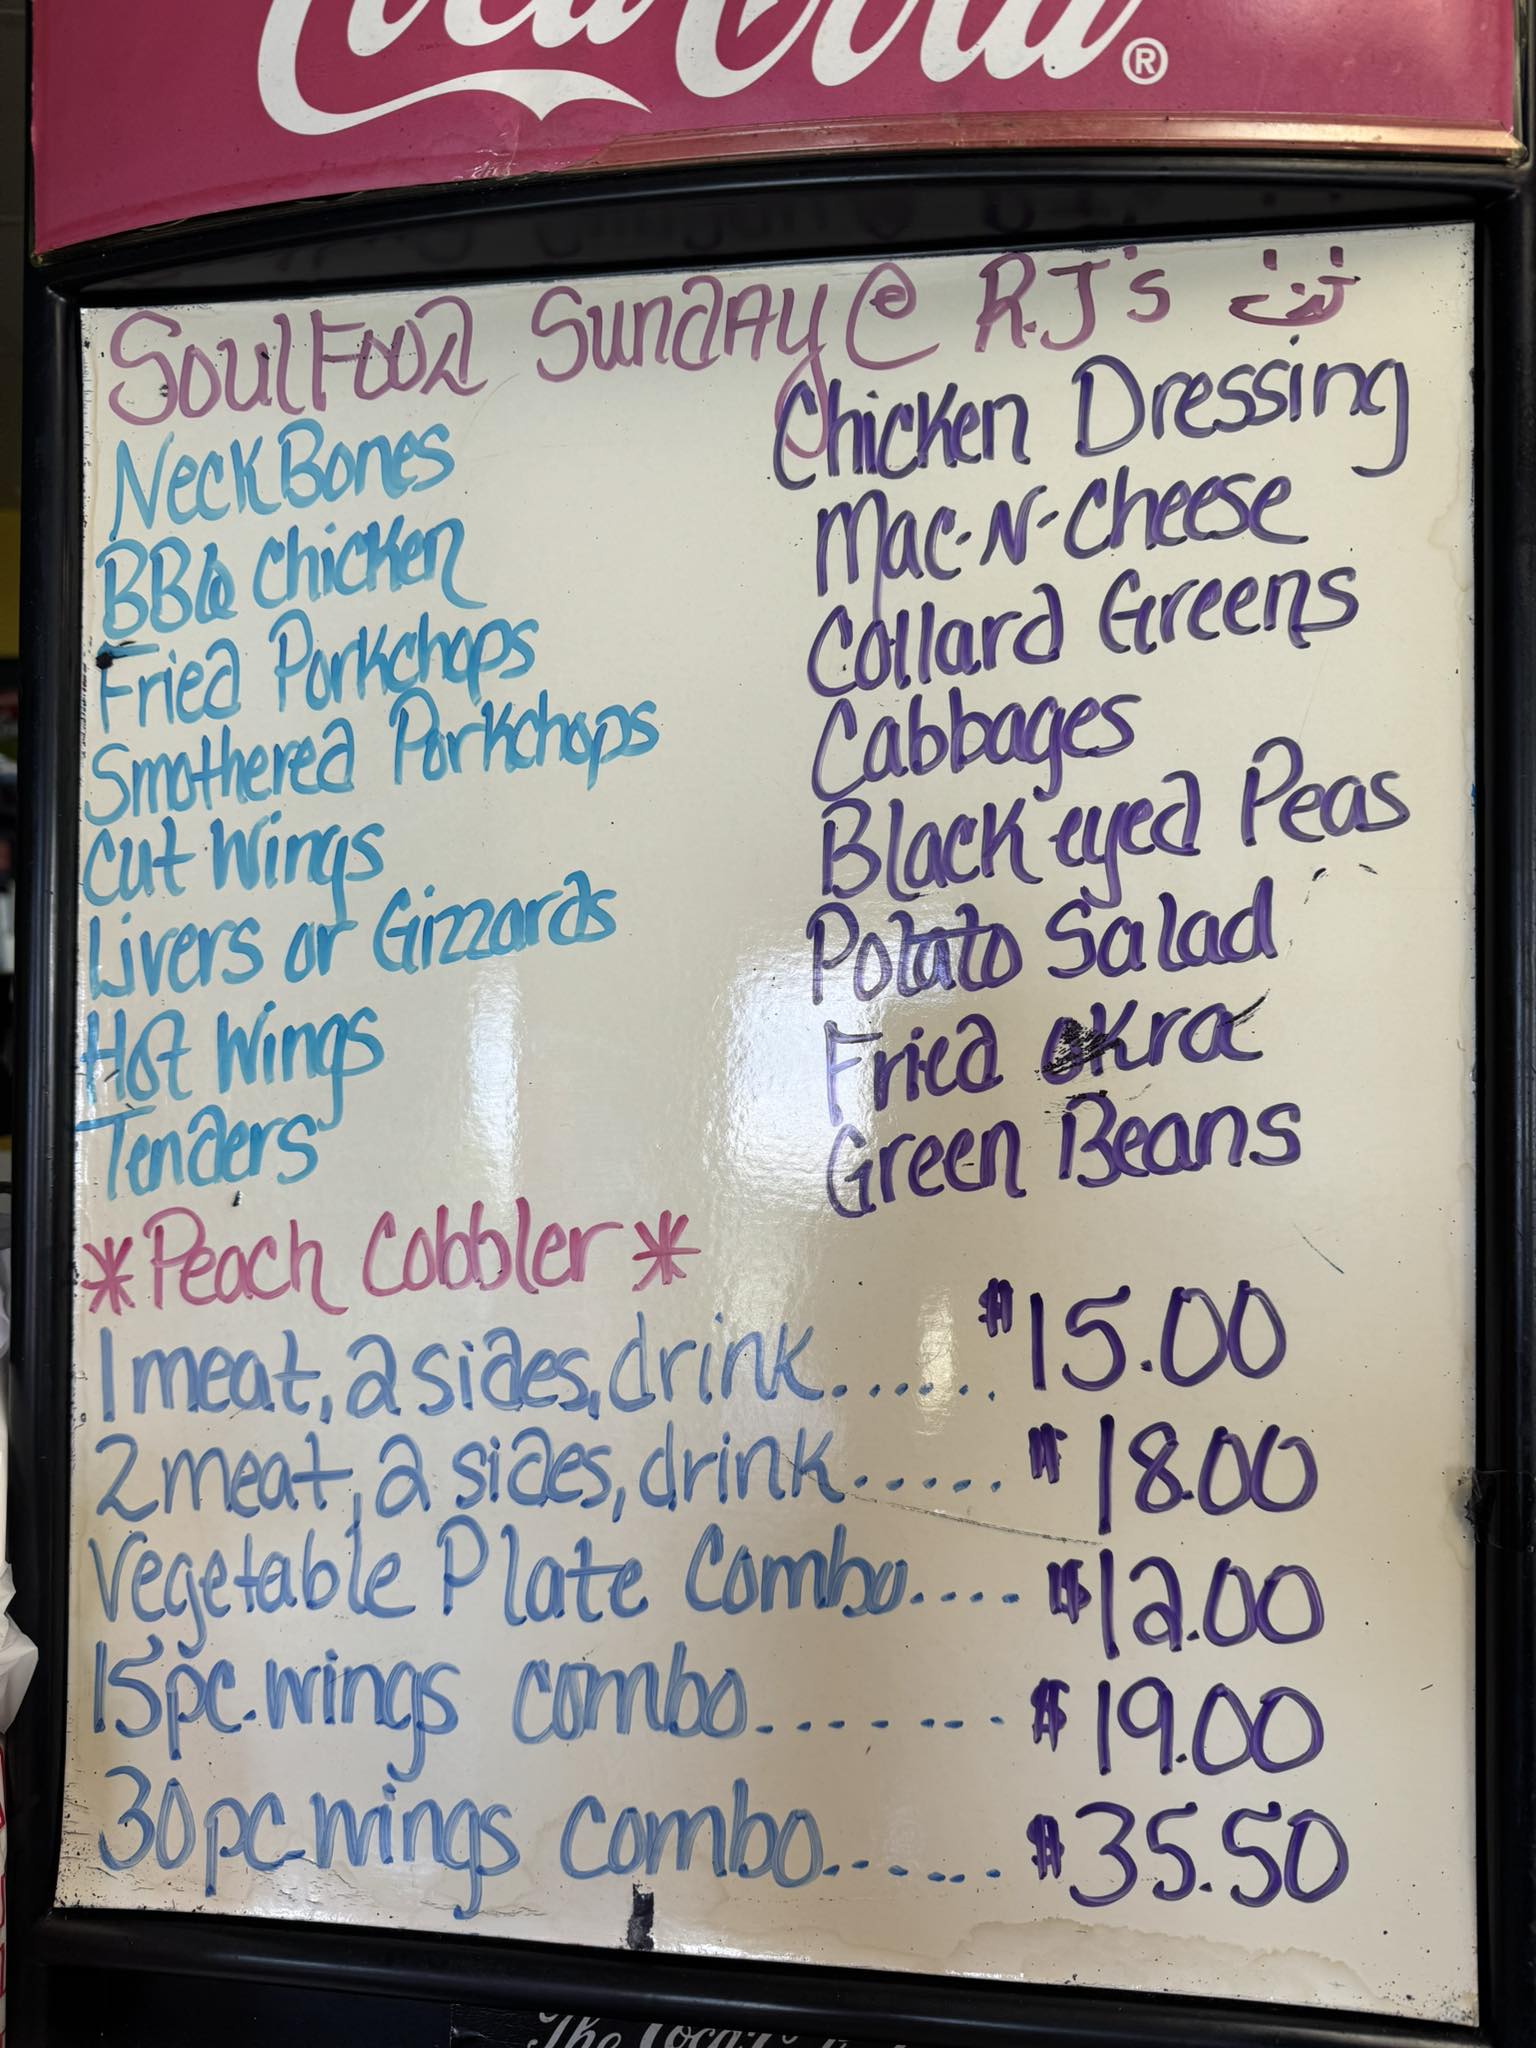 Coca-Cola®
SoulFood Sunday @ R.J's
Neck Bones
BBQ Chicken
Fried Porkchops
Smothered Porkchops
Cut Wings
Livers or Gizzards
Hot Wings
Tenders
Chicken Dressing
Mac-N-Cheese
Collard Greens
Cabbages
Black eyed Peas
Potato Salad
Fried okra
Green Beans
*Peach Cobbler*
1 meat, 2 sides, drink....... $15.00
2 meat, 2 sides, drink...... $18.00
Vegetable Plate Combo.... $12.00
15pc. wings combo........ $19.00
30pc. wings combo....... $35.50
The Coca-